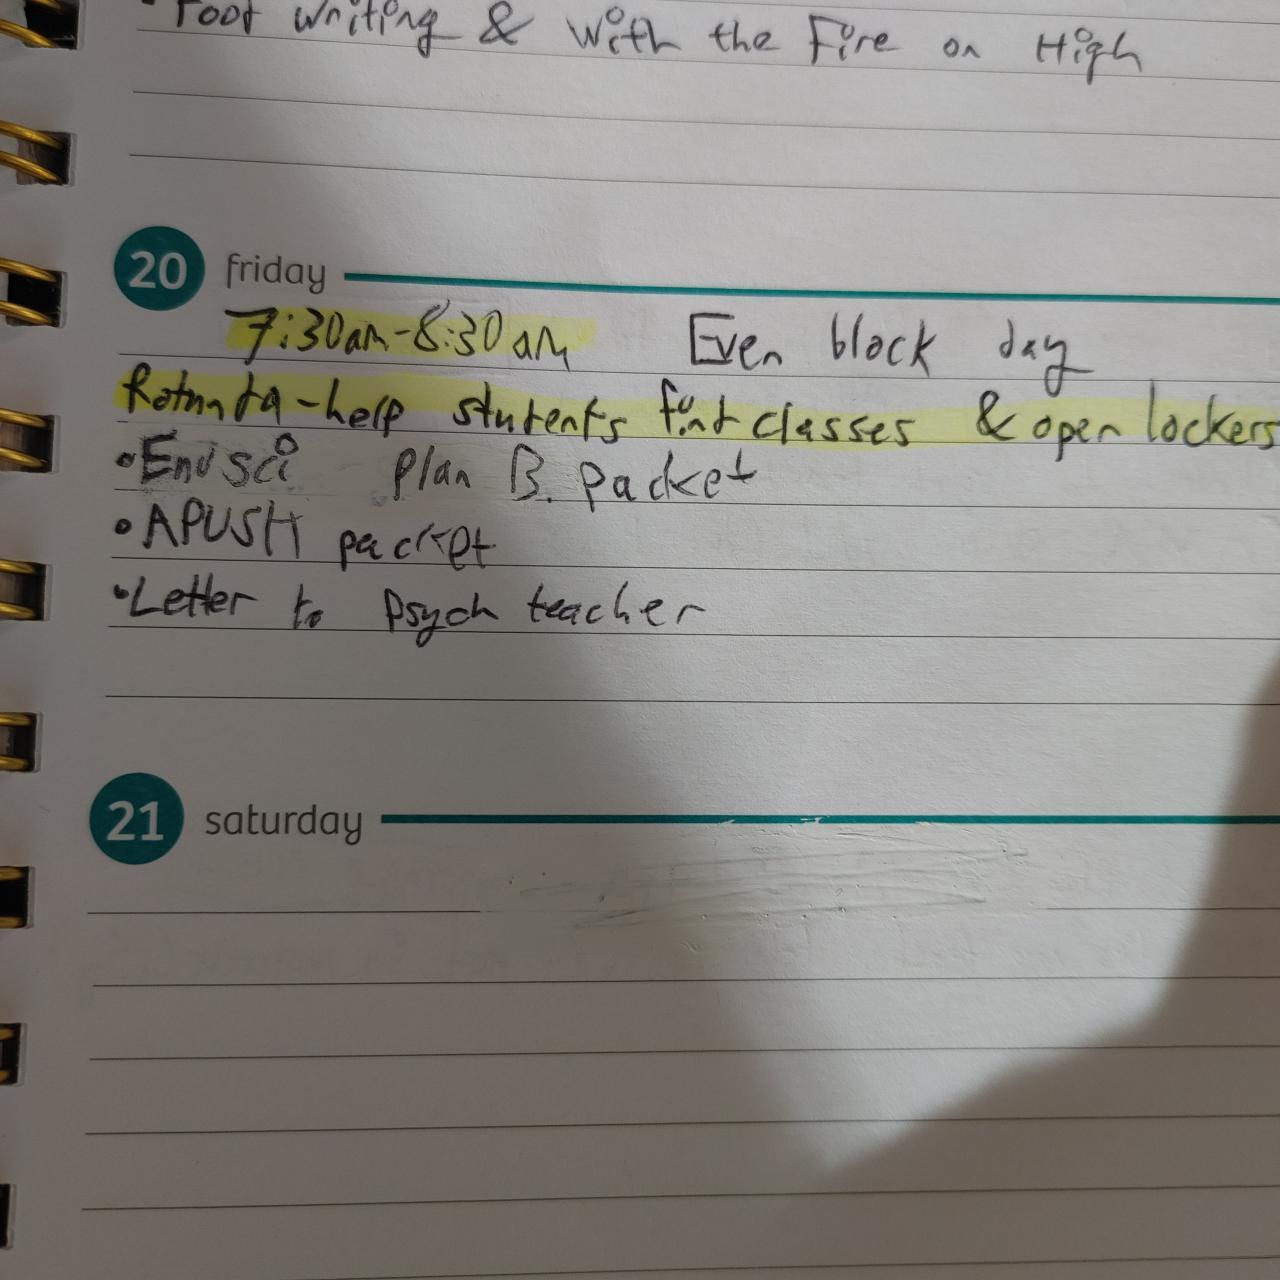 • Food writing & With the Fire on High
20 friday
7:30am-8:30am Even block day
Rotunda-help students find classes & open lockers
• Env sci Plan B. Packet
• APUSH packet
• Letter to Psych teacher
21 saturday